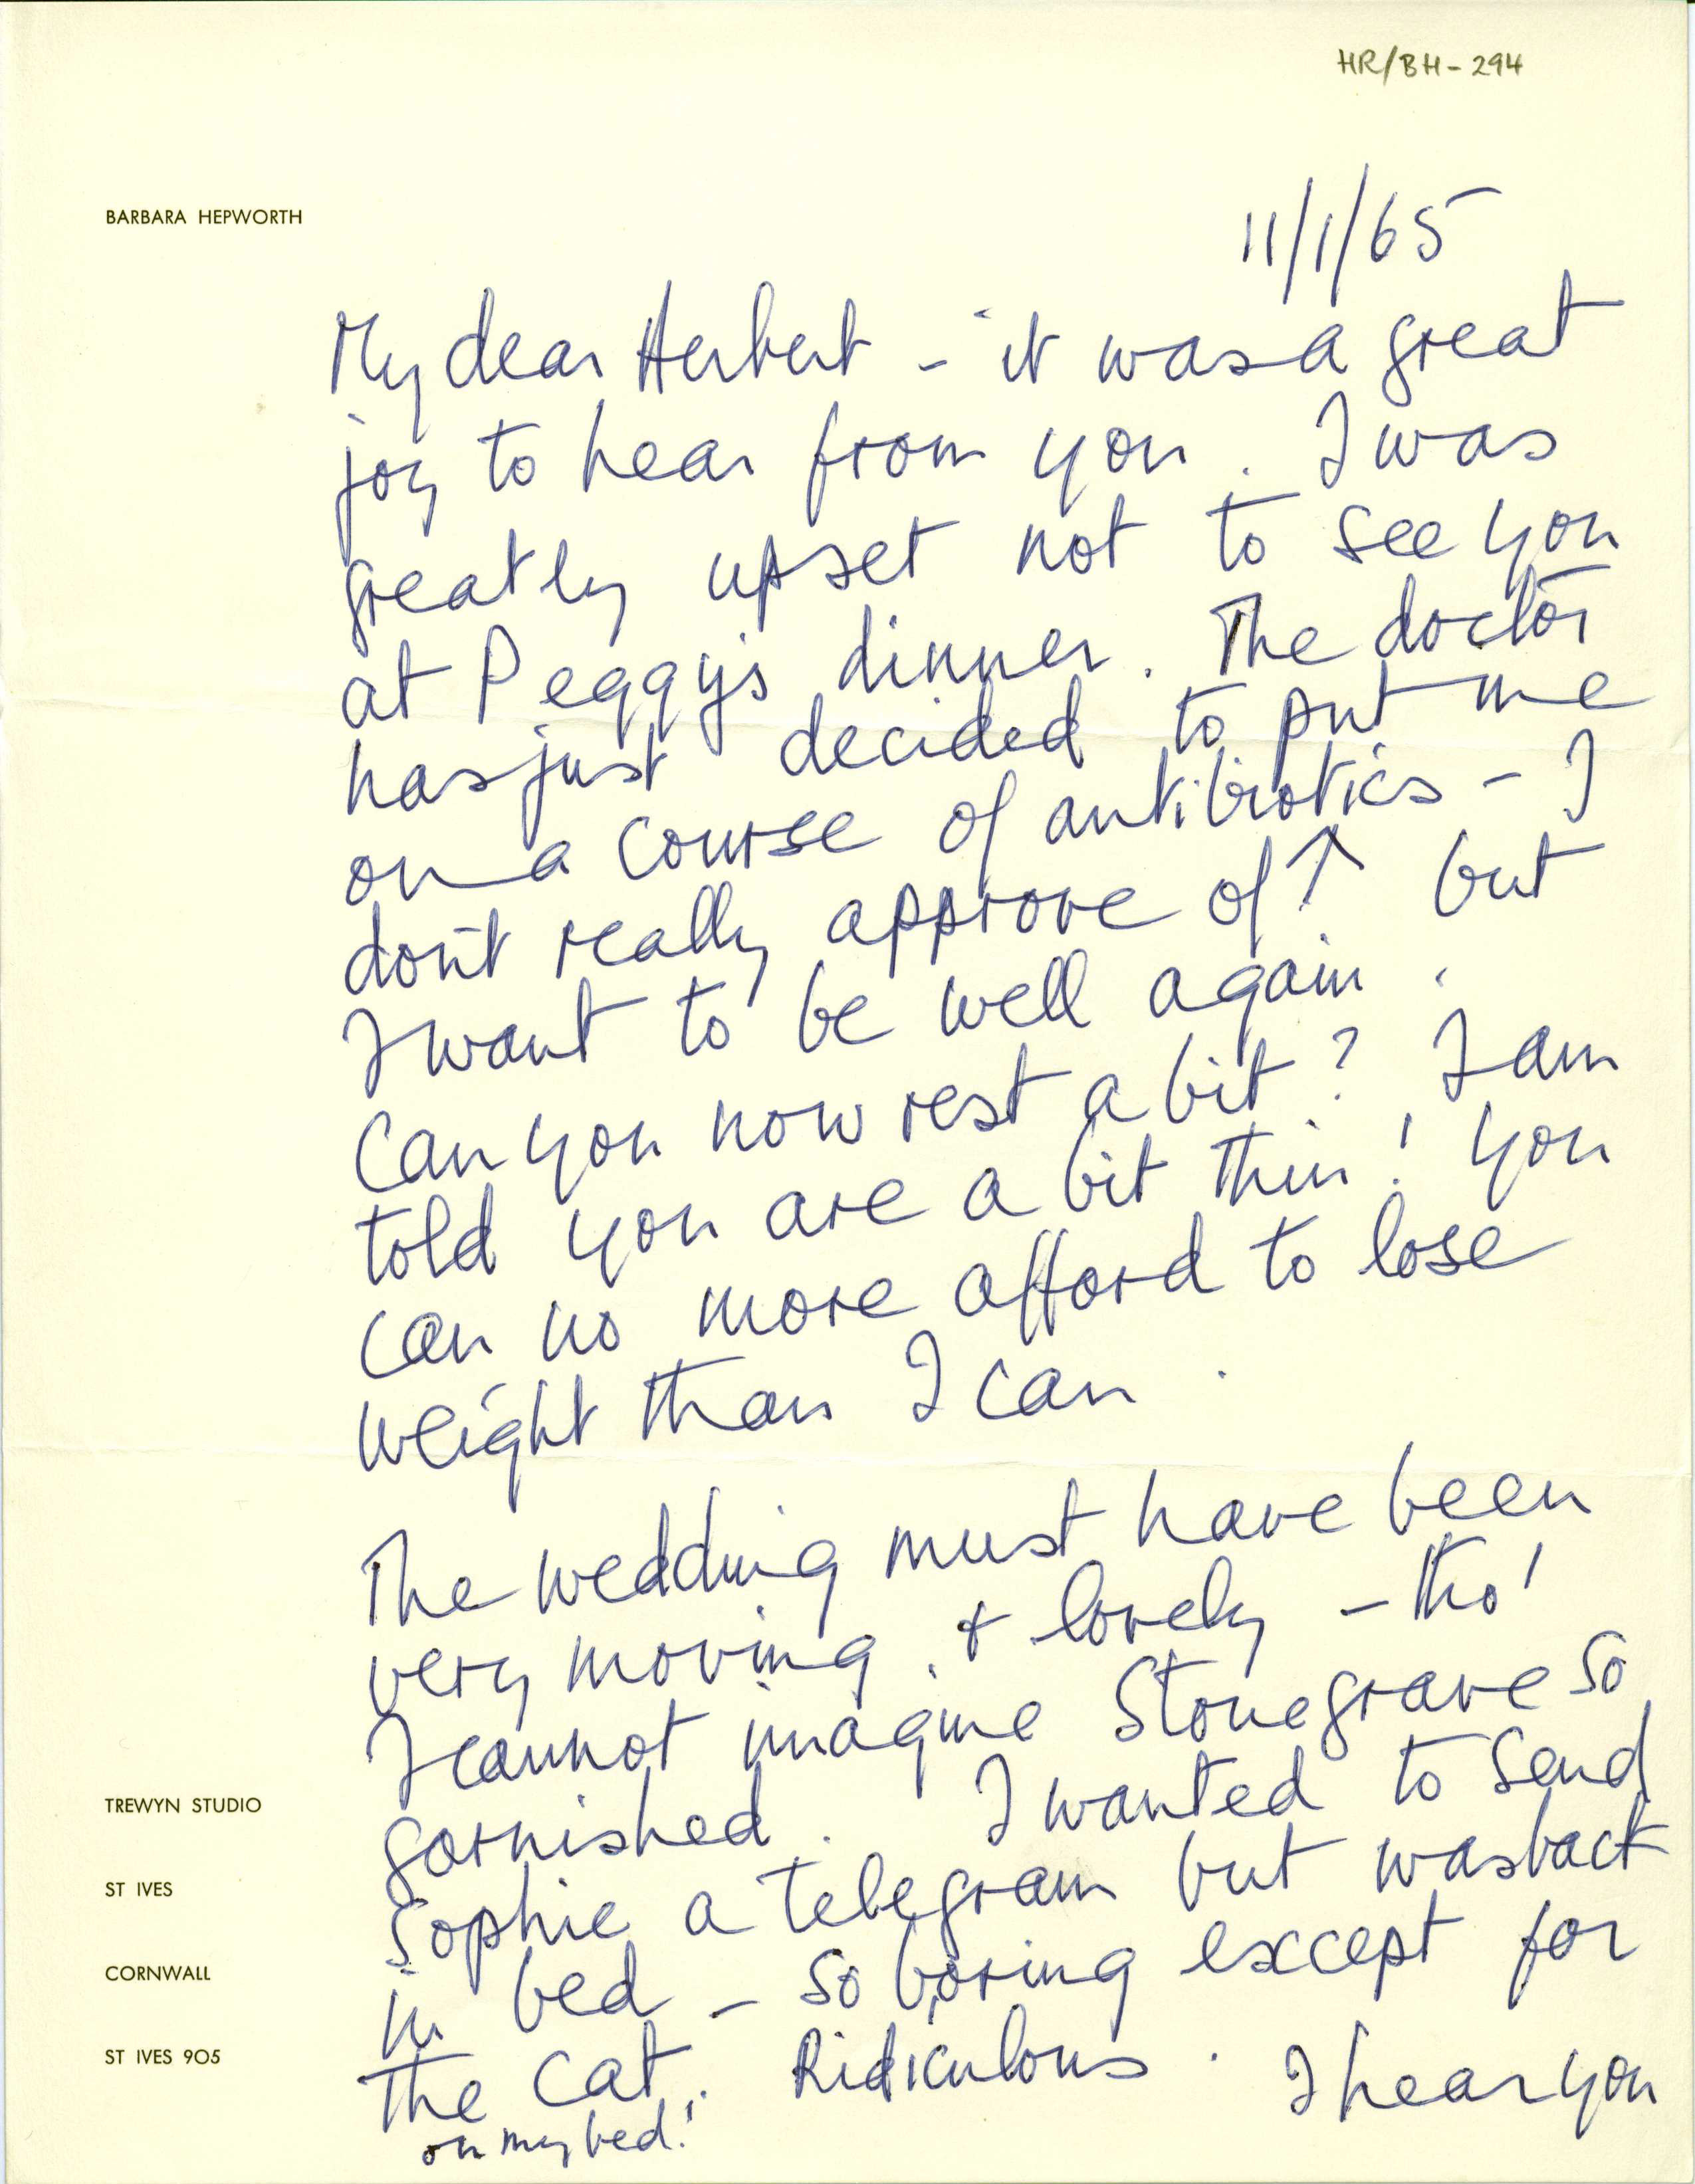 HR/BH-294
BARBARA HEPWORTH
11/1/65
My dear Herbert - it was a great
joy to hear from you. I was
greatly upset not to see you
at Peggy's dinner. The doctor
has just decided to put me
on a course of antibiotics - I
don't really approve of ↑ but
I want to be well again.
Can you now rest a bit? I am
told you are a bit thin! You
can no more afford to lose
weight than I can.
The wedding must have been
very moving & lovely - tho'
I cannot imagine Stonegrave so
garnished. I wanted to send
Sophie a telegram but was back
in bed - so boring except for
the cat. Ridiculous. I hear you
on my bed!
TREWYN STUDIO
ST IVES
CORNWALL
ST IVES 905